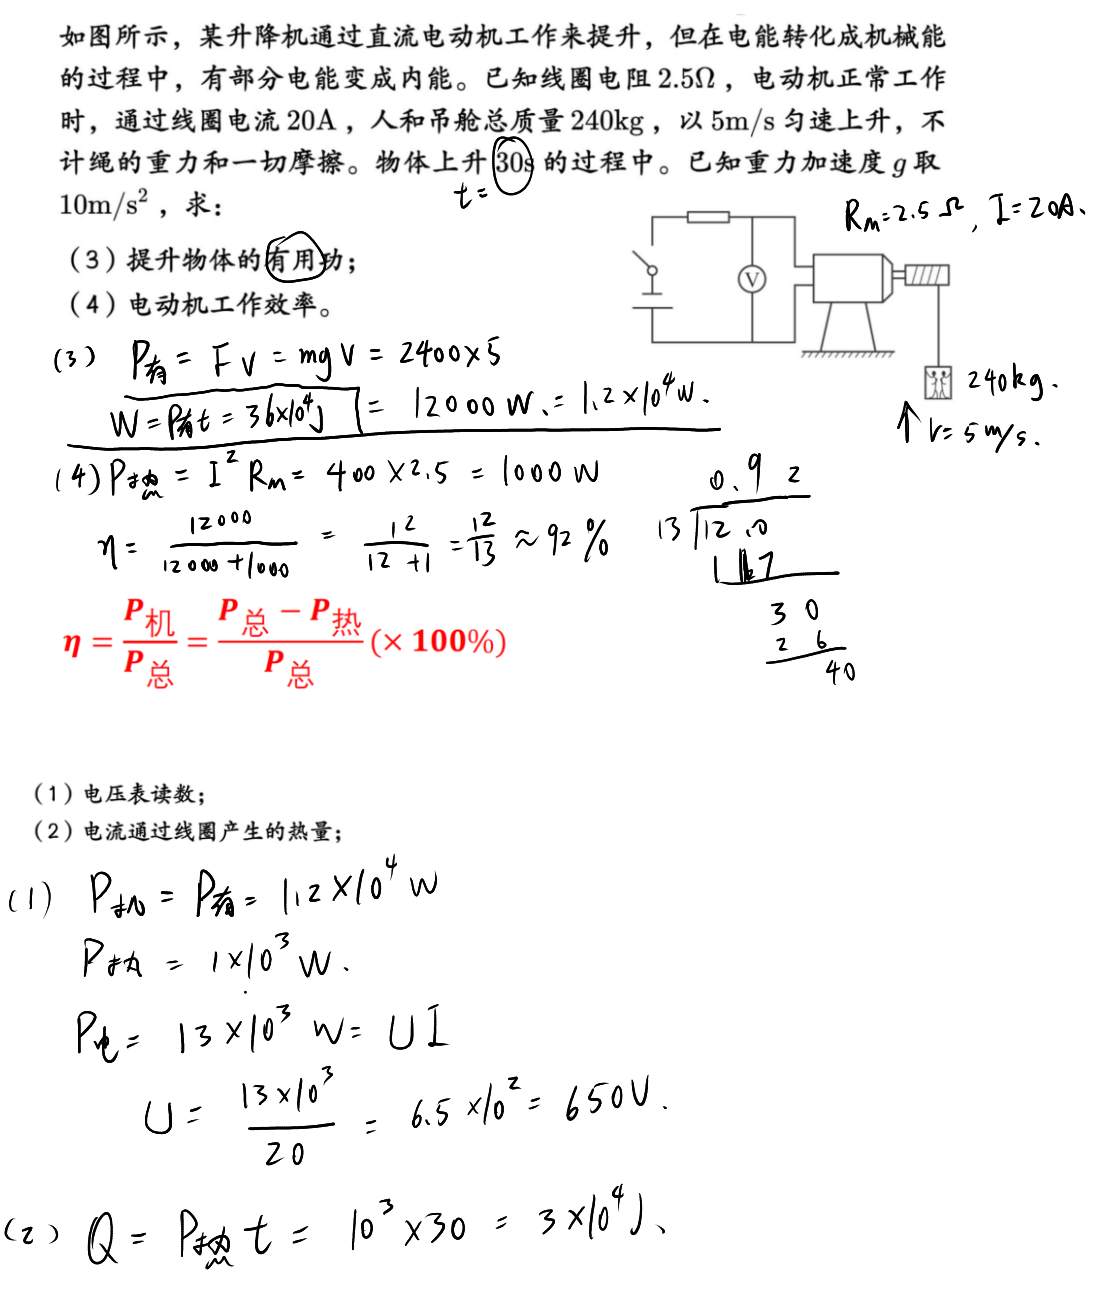 如图所示，某升降机通过直流电动机工作来提升，但在电能转化成机械能
的过程中，有部分电能变成内能。已知线圈电阻 2.5Ω，电动机正常工作
时，通过线圈电流 20A，人和吊舱总质量 240kg，以 5m/s 匀速上升，不
计绳的重力和一切摩擦。物体上升 30s 的过程中。已知重力加速度 g 取
t=
10m/s²，求：
Rm=2.5Ω, I=20A.
（3）提升物体的有用功；
（4）电动机工作效率。
V
240kg.
V=5m/s.
(3) P有 = FV = mgV = 2400×5
= 12000W. = 1.2×10⁴W.
W=P有t = 36×10⁴J
(4) P热 = I²Rm = 400×2.5 = 1000W
η = 12000/(12000+1000) = 12/(12+1) = 12/13 ≈ 92%
0.92
13 12.0
117
30
26
40
η = P机/P总 = (P总 − P热)/P总 (× 100%)
（1）电压表读数；
（2）电流通过线圈产生的热量；
(1) P机 = P有 = 1.2×10⁴W
P热 = 1×10³W.
P电 = 13×10³W = UI
U = 13×10³/20 = 6.5×10² = 650V.
(2) Q = P热t = 10³×30 = 3×10⁴J、